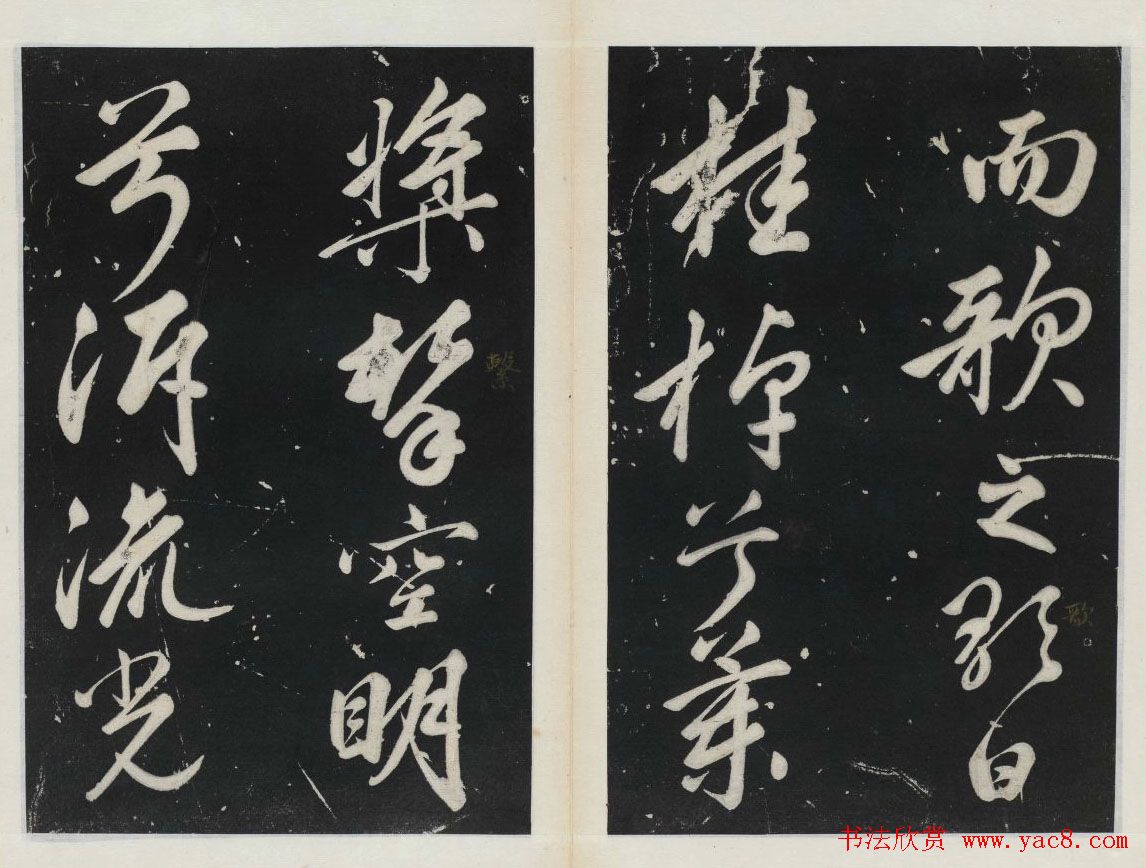 而歌之歌曰
歌
桂棹兮蘭
槳擊空明
兮泝流光
书法欣赏 www.yac8.com